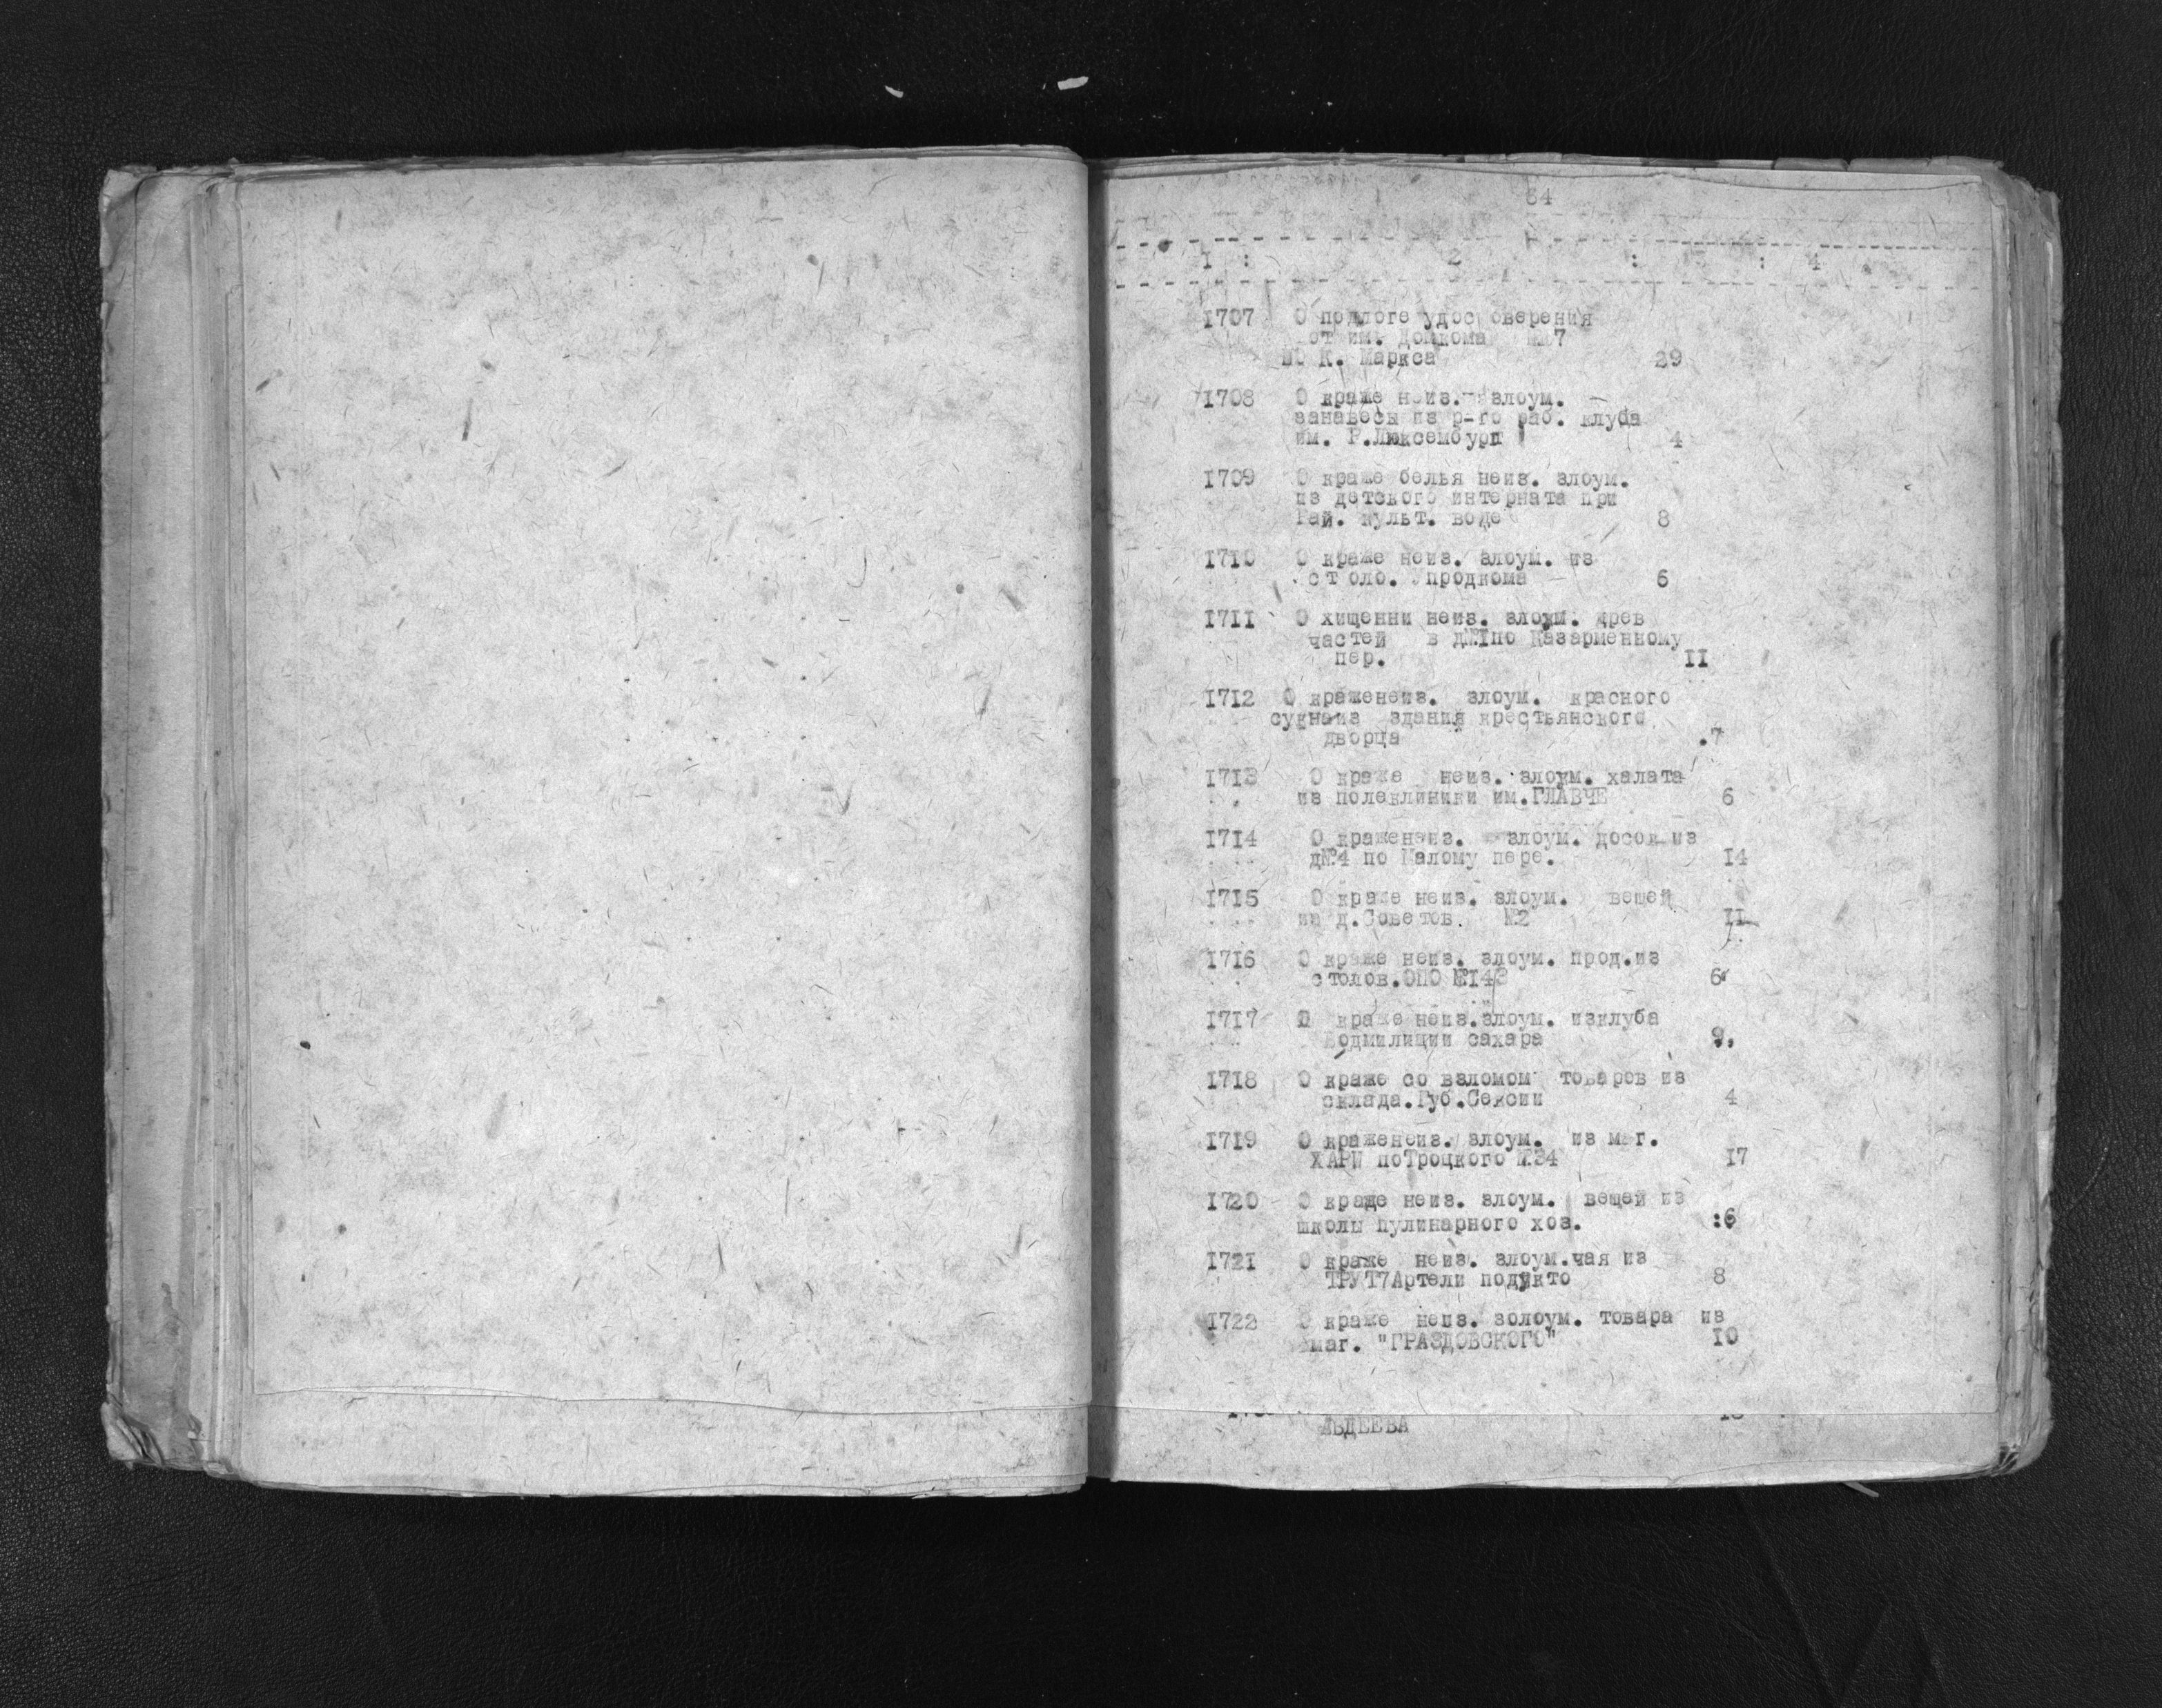 84
I : 2 : 3 : 4
I707 О подлоге удостоверения
от им. Домкома №7
по К. Маркса 29
I708 О краже неиз. злоум.
занавесы из р-го раб. клуба
им. Р.Люксембург 4
I709 О краже белья неиз. злоум.
из детского интерната при
Рай. культ. воде 8
I7I0 О краже неиз. злоум. из
столо. продкома 6
I7II О хищенни неиз. злоум. древ
частей в д№Iпо Казарменному
пер. II
I7I2 О краженеиз. злоум. красного
сукнаиз здания крестьянского
дворца .7
I7I3 О краже неиз. злоум. халата
из полеклиники им.ГЛАВЧЕ 6
I7I4 О краженеиз. злоум. досок из
д№4 по Малому пере. I4
I7I5 О краже неиз. злоум. вещей
из д.Советов №2 II
I7I6 О краже неиз. злоум. прод.из
столов.ОПО №I43 6
I7I7 О краже неиз.злоум. изклуба
Водмилиции сахара 9,
I7I8 О краже со взломом товаров из
склада.Губ.Сексии 4
I7I9 О краженеиз. злоум. из маг.
ХАРИ поТроцкого №34 I7
I720 О краде неиз. злоум. вещей из
школы пулинарного хоз. :6
I72I О краже неиз. злоум.чая из
ТРУТ7Артели подукто 8
I722 О краже неиз. золоум. товара из
маг. "ГРАЗДОВСКОГО" I0
АВДЕЕВА